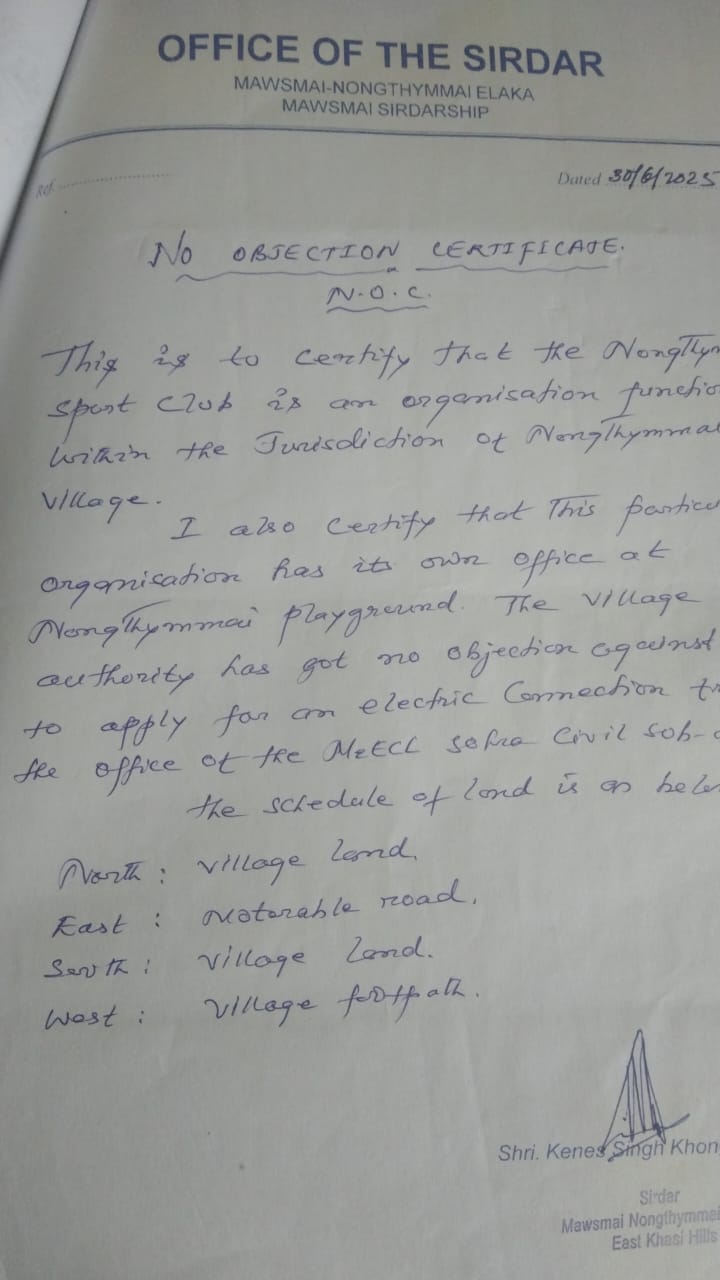 OFFICE OF THE SIRDAR
MAWSMAI-NONGTHYMMAI ELAKA
MAWSMAI SIRDARSHIP
Ref. ..............................
Dated 30/6/2025
NO OBJECTION CERTIFICATE.
N.O.C.
This is to certify that the NongThym
Sport Club is an organisation functio
within the Jurisdiction of NongThymmai
Village.
I also certify that This particu
organisation has its own office at
NongThymmai playground. The Village
authority has got no objection against
to apply for an electric Connection
the office of the MeECL Sohra Civil Sub-
the schedule of land is as below
North : Village land.
East : Motorable road.
South : Village Land.
West : Village footpath.
Shri. Kenes Singh Khon
Sirdar
Mawsmai Nongthymmai
East Khasi Hills